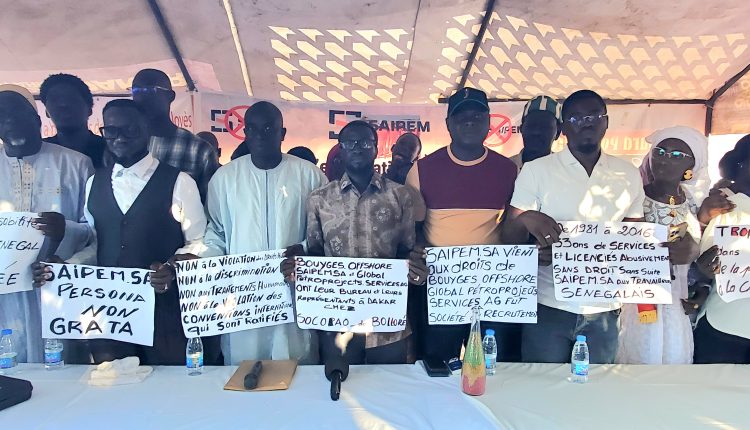 loyés
SAIPEM
SENEGAL
SAIPEM.SA
PERSONA
NON
GRATA
NON à la VIOLATION
NON à la discrimination
NON aux TRAITEMENTS
NON à la VIOLATION des
CONVENTIONS internationales
qui sont Ratifiés
BOUYGES. OFFSHORE
SAIPEM.SA et Global
PetROPROJECTS SERVICES AG
ONT LEUR Bureau et Leurs
REPRÉSENTANTS à DAKAR
CHEZ
SOCOPAO - BOLLORE
SAIPEM.SA VIENT
aux DROITS de
BOUYGES OFFSHORE
GLOBAL PETROPROJETS
SERVICES AG FUT
SOCIETE de RECRUTEMENT
De 1981 à 2016
33 ans de SERVICES
ET Licenciés ABUSIVEMENT
SANS DROIT SANS SUITE
SAIPEM.SA AUX TRAVAILLEURS
SENEGALAIS
TROP
dans
de la
à la